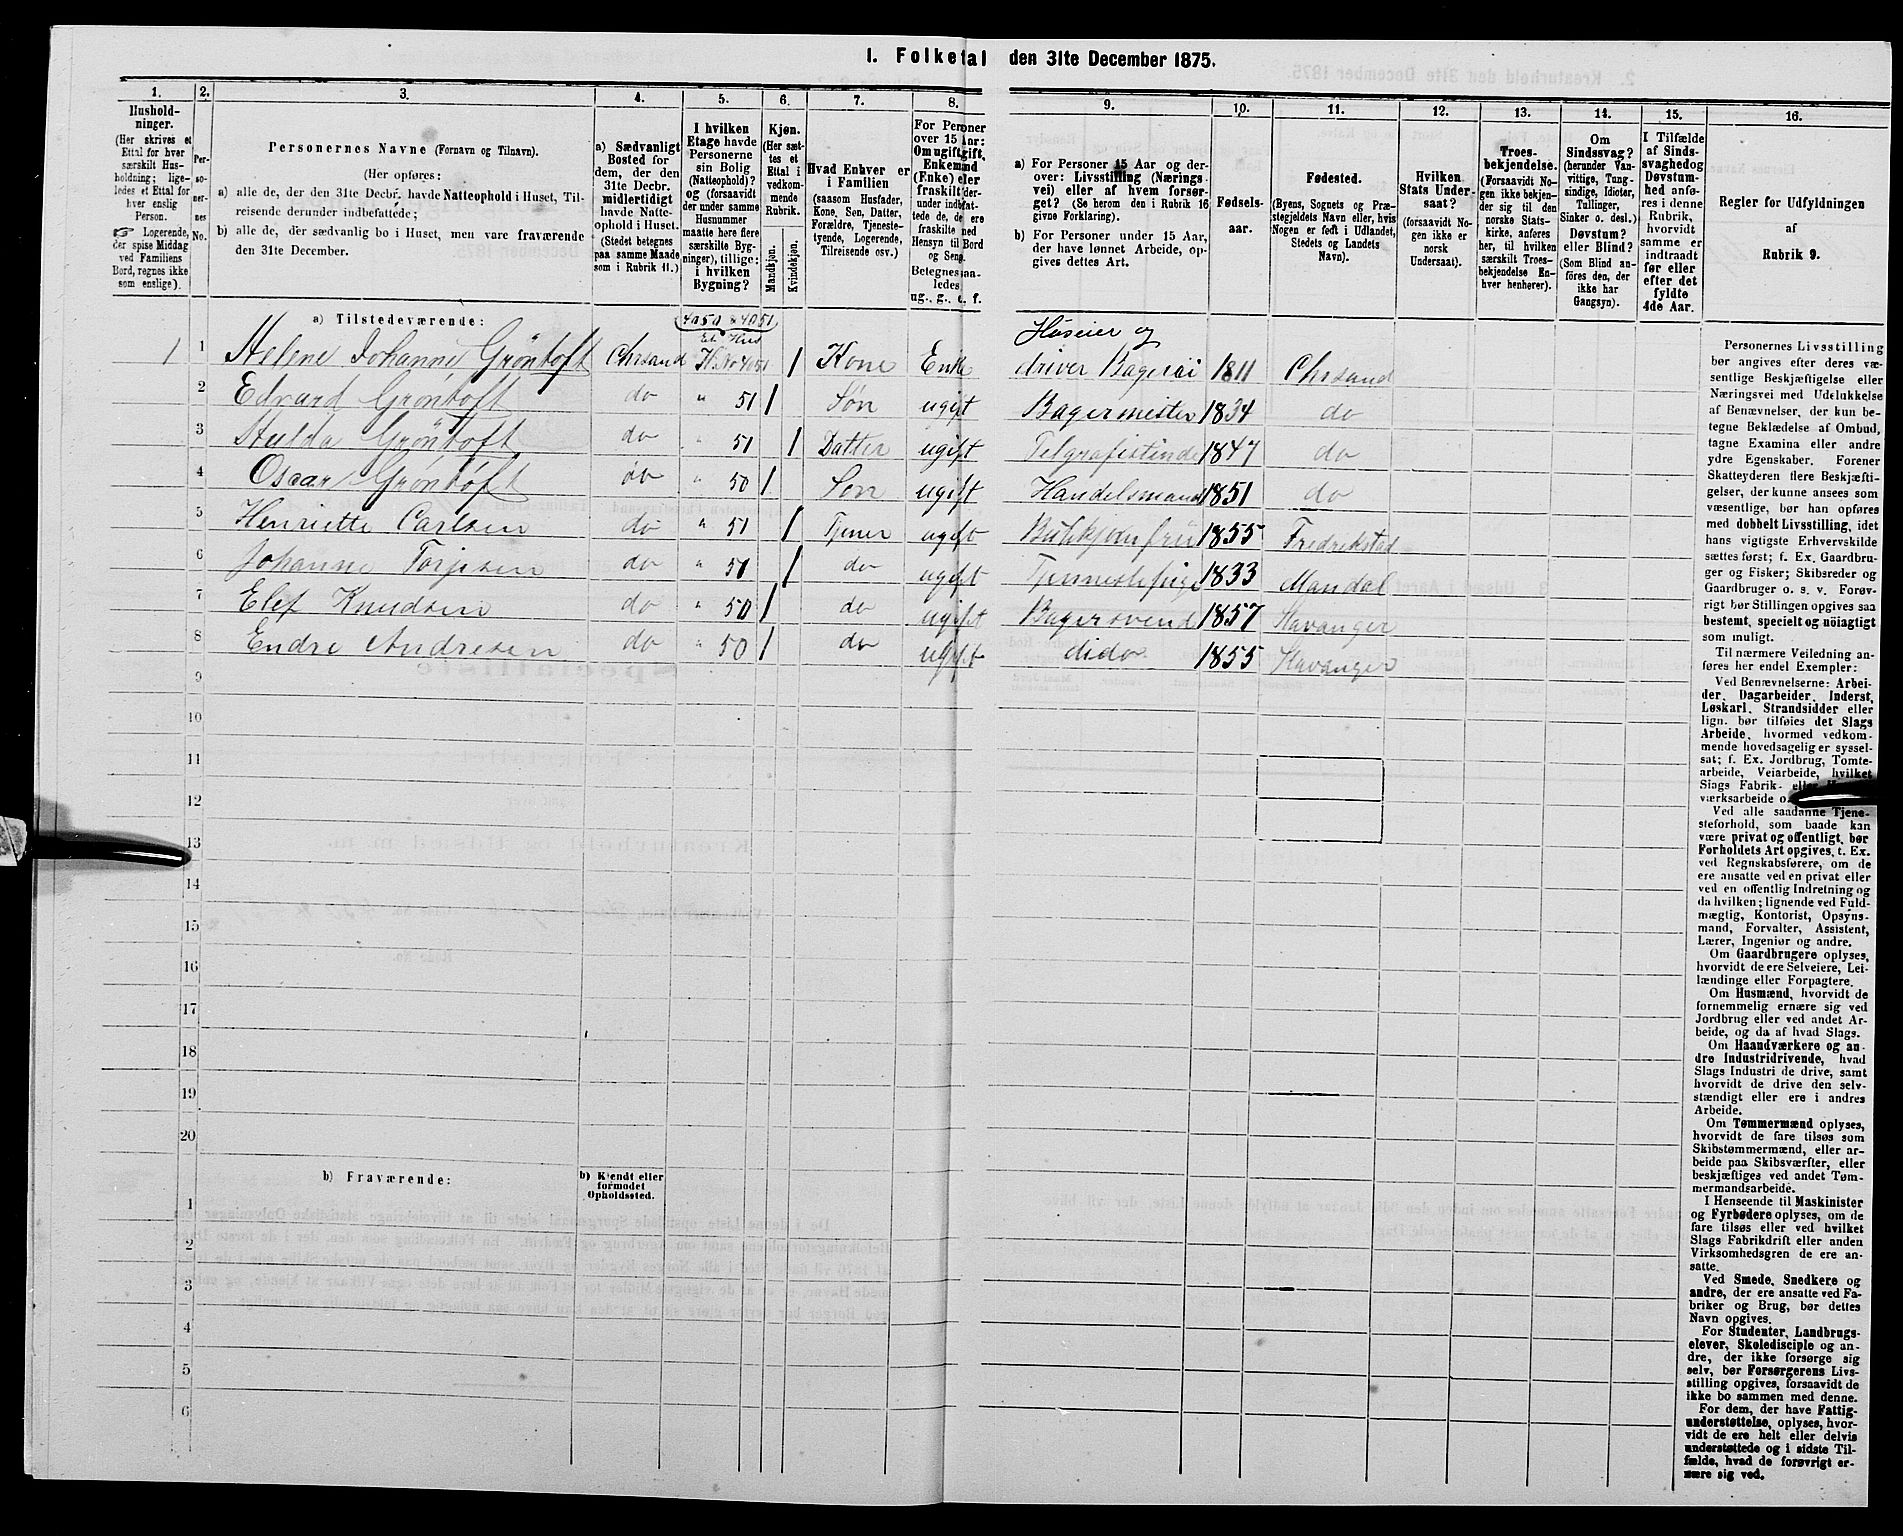 1. Folketal den 31te December 1875.
1. 2. 3. 4. 5. 6. 7. 8. 9. 10. 11. 12. 13. 14. 15. 16.
Hushold-
ninger.
(Her skrives et
Ettal for hver
særskilt Hus-
holdning; lige-
ledes et Ettal for
hver enslig
Person.
☞ Logerende,
der spise Middag
ved Familiens
Bord, regnes ikke
som enslige).
Per-
so-
ner-
nes
No.
Personernes Navne (Fornavn og Tilnavn).
(Her opføres:
a) alle de, der den 31te Decbr. havde Natteophold i Huset, Til-
reisende derunder indbefattede;
b) alle de, der sædvanlig bo i Huset, men vare fraværende
den 31te December.
a) Sædvanligt
Bosted for
dem, der den
31te Decbr.
midlertidigt
havde Natte-
ophold i Huset.
(Stedet betegnes
paa samme Maade
som i Rubrik 11.)
I hvilken
Etage havde
Personerne
sin Bolig
(Natteophold)?
og (forsaavidt
der under samme
Husnummer
maatte høre flere
særskilte Byg-
ninger), tillige:
i hvilken
Bygning?
Kjøn.
(Her sæt-
tes et
Ettal i
vedkom-
mende
Rubrik.
Mandkjøn.
Kvindekjøn.
Hvad Enhver er
i Familien
(saasom Husfader,
Kone, Søn, Datter,
Forældre, Tjeneste-
tyende, Logerende,
Tilreisende osv.)
For Personer
over 15 Aar:
Om ugift, gift,
Enkemand
(Enke) eller
fraskilt
Betegnes saa-
ledes
ug., g., e. f.
a) For Personer 15 Aar og der-
over: Livsstilling (Nærings-
vei) eller af hvem forsør-
get? (Se herom den i Rubrik 16
givne Forklaring).
b) For Personer under 15 Aar,
der have lønnet Arbeide, op-
gives dettes Art.
Fødsels-
aar.
Fødested.
(Byens, Sognets og Præ-
stegjeldets Navn eller, hvis
Nogen er født i Udlandet,
Stedets og Landets
Navn).
Hvilken
Stats Under-
saat?
(forsaavidt No-
gen ikke er
norsk
Undersaat).
Troes-
bekjendelse.
(Forsaavidt No-
gen ikke bekjen-
der sig til den
norske Stats-
kirke, anføres
her, til hvilken
særskilt Troes-
bekjendelse En-
hver henhører).
Om
Sindssvag?
(herunder Van-
vittige, Tung-
sindige, Idioter,
Tullinger,
Sinker o. desl.)
Døvstum?
eller Blind?
(Som Blind an-
føres den, der
ikke har
Gangsyn).
I Tilfælde
af Sinds-
svaghed og
Døvstum-
hed anfø-
res i denne
Rubrik,
hvorvidt
samme er
indtraadt
før eller
efter det
fyldte
4de Aar.
Regler for Udfyldningen
af
Rubrik 9.
a) Tilstedeværende:
4050 & 4051
Et Hus
1 1 Helene Johanne Gröntoft Chrsand H. No 4051 1 Kone Enke Huseier og
driver Bageri 1811 Chrsand
2 Edvard Gröntoft do " 51 1 Søn ugift Bagermester 1834 do
3 Hulda Gröntoft do " 51 1 Datter ugift Telgrafistinde 1847 do
4 Oscar Gröntoft do " 50 1 Søn ugift Handelsmand 1851 do
5 Henriette Carlsen do " 51 1 Tjener ugift 1855 Fredrikstad
6 Johanne Torjesen do " 51 1 do ugift Tjennestepige 1833 Mandal
7 Elef Knudsen do " 50 1 do ugift Bagersvend 1857 Stavanger
8 Endre Andresen do " 50 1 do ugift dido 1855 Stavanger
9
10
11
12
13
14
15
16
17
18
19
20
b) Fraværende: b) Kjendt eller
formodet
Opholdssted.
1
2
3
4
5
6
Personernes Livsstilling
bør angives efter deres væ-
sentlige Beskjæftigelse eller
Næringsvei med Udelukkelse
af Benævnelser, der kun be-
tegne Beklædelse af Ombud,
tagne Examina eller andre
ydre Egenskaber. Forener
Skatteyderen flere Beskjæfti-
gelser, der kunne ansees som
væsentlige, bør han opføres
med dobbelt Livsstilling, idet
hans vigtigste Erhvervskilde
sættes først; f. Ex. Gaardbru-
ger og Fisker; Skibsreder og
Gaardbruger o. s. v. Forøv-
rigt bør Stillingen opgives saa
bestemt, specielt og nöiagtigt
som muligt.
Til nærmere Veiledning an-
føres her endel Exempler:
Ved Benævnelserne: Arbei-
der, Dagarbeider, Inderst,
Løskarl, Strandsidder eller
lign. bør tilføies det Slags
Arbeide, hvormed vedkom-
mende hovedsagelig er syssel-
sat; f. Ex. Jordbrug, Tomte-
arbeide, Veiarbeide, hvilket
Slags Fabrik- eller
værksarbeide
Ved alle saadanne Tjene-
steforhold, som baade kan
være privat og offentligt, bør
Forholdets Art opgives, t. Ex.
ved Regnskabsførere, om de
ere ansatte ved en privat eller
ved en offentlig Indretning og
da hvilken; lignende ved Fuld-
mægtig, Kontorist, Opsyns-
mand, Forvalter, Assistent,
Lærer, Ingeniør og andre.
Om Gaardbrugere oplyses,
hvorvidt de ere Selveiere, Lei-
lændinge eller Forpagtere.
Om Husmænd, hvorvidt de
fornemmelig ernære sig ved
Jordbrug eller ved andet Ar-
beide, og da af hvad Slags.
Om Haandværkere og an-
dre Industridrivende, hvad
Slags Industri de drive, samt
hvorvidt de drive den selv-
stændigt eller ere i andres
Arbeide.
Om Tømmermænd oplyses,
hvorvidt de fare tilsøs som
Skibstømmermænd, eller ar-
beide paa Skibsværfter, eller
beskjæftiges ved andet Tøm-
mermandsarbeide.
I Henseende til Maskinister
og Fyrbødere oplyses, om de
fare tilsøs eller ved hvilket
Slags Fabrikdrift eller anden
Virksomhedsgren de ere an-
satte.
Ved Smede, Snedkere og
andre, der ere ansatte ved Fa-
briker og Brug, bør dettes
Navn opgives.
For Studenter, Landbrugs-
elever, Skoledisciple og an-
dre, der ikke forsørge sig
selv, bør Forsørgerens Livs-
stilling opgives, forsaavidt de
ikke bo sammen med denne.
For dem, der have Fattig-
understøttelse, oplyses, hvor-
vidt de ere helt eller delvis
understøttede og i sidste Til-
fælde, hvad de forøvrigt er-
nære sig ved.